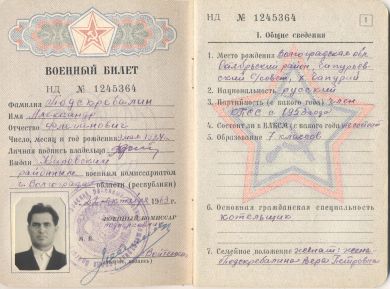 ВОЕННЫЙ БИЛЕТ
НД № 1245364
Фамилия Подскребалин
Имя Александр
Отчество
Число, месяц и год рождения
Личная подпись владельца
Выдан Кировским
районным военным комиссариатом
г. Волгограда области (республики)
октября 1963 г.
ВОЕННЫЙ КОМИССАР
подполковник
М. П.
НД № 1245364
1
I. Общие сведения
1. Место рождения Волгоградская обл
район,
2. Национальность русский
3. Партийность (с какого года) член
КПСС с 1953 года
4. Состоит ли в ВЛКСМ (с какого года)
5. Образование 7 классов
6. Основная гражданская специальность
котельщик
7. Семейное положение женат: жена-
Подскребалина Вера Петровна